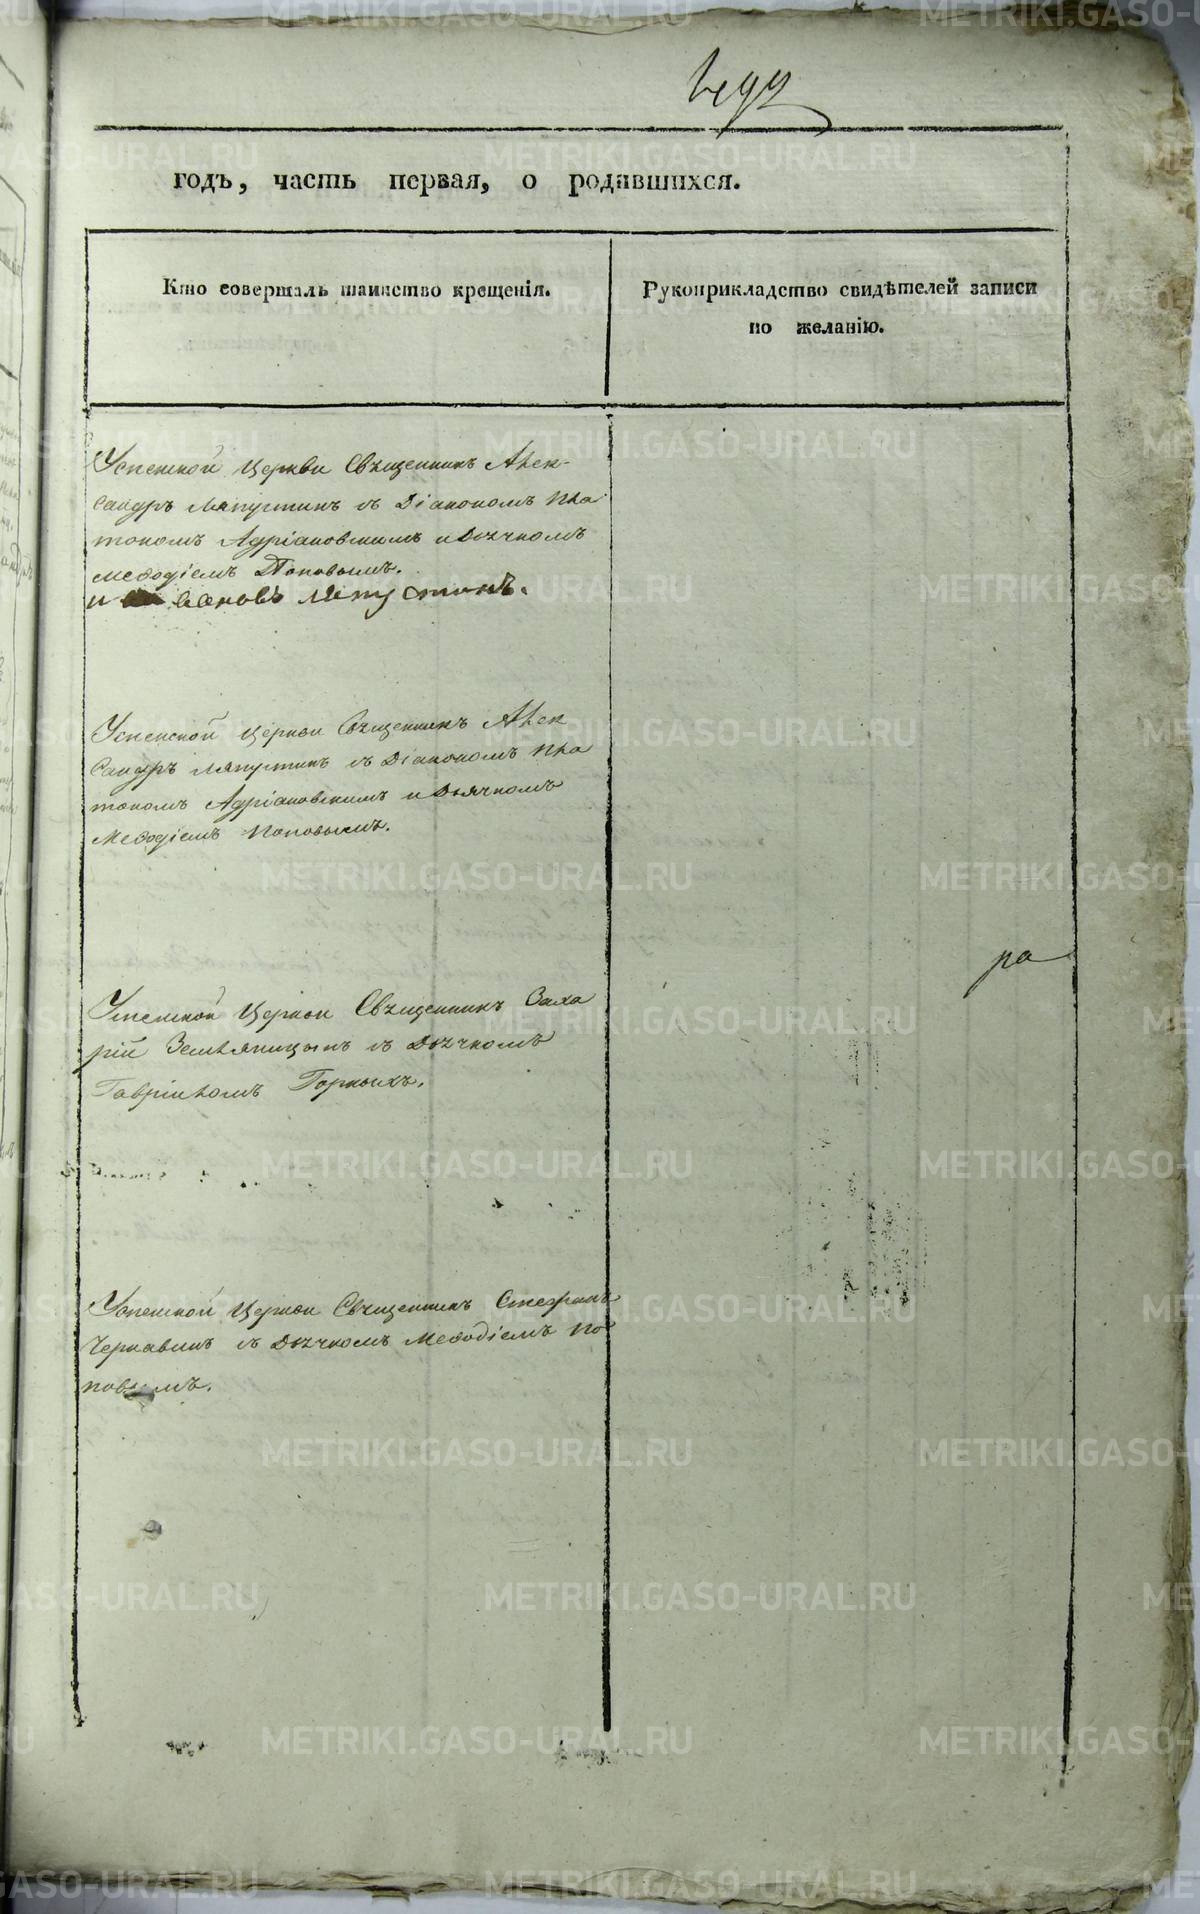 годъ, часть первая, о родившихся.
Кто совершалъ таинство крещенія.
Рукоприкладство свидѣтелей записи
по желанію.
Успенской Церкви Священникъ Алек-
сандръ Ляпустинъ съ Діакономъ Пла
тономъ Адріановскимъ и Дьячкомъ
Меѳодіемъ Поповымъ.
и Ляпустинъ.
Успенской Церкви Священникъ Алек
сандръ Ляпустинъ съ Діакономъ Пла
тономъ Адріановскимъ и Дьячкомъ
Меѳодіемъ Поповымъ.
ра
Успенской Церкви Священникъ Заха
рій Земляницынъ съ Дьячкомъ
Гавріиломъ Горныхъ.
Успенской Церкви Священникъ Стефанъ
Чернавинъ съ Дьячкомъ Меѳодіемъ По
повымъ.
METRIKI.GASO-URAL.RU